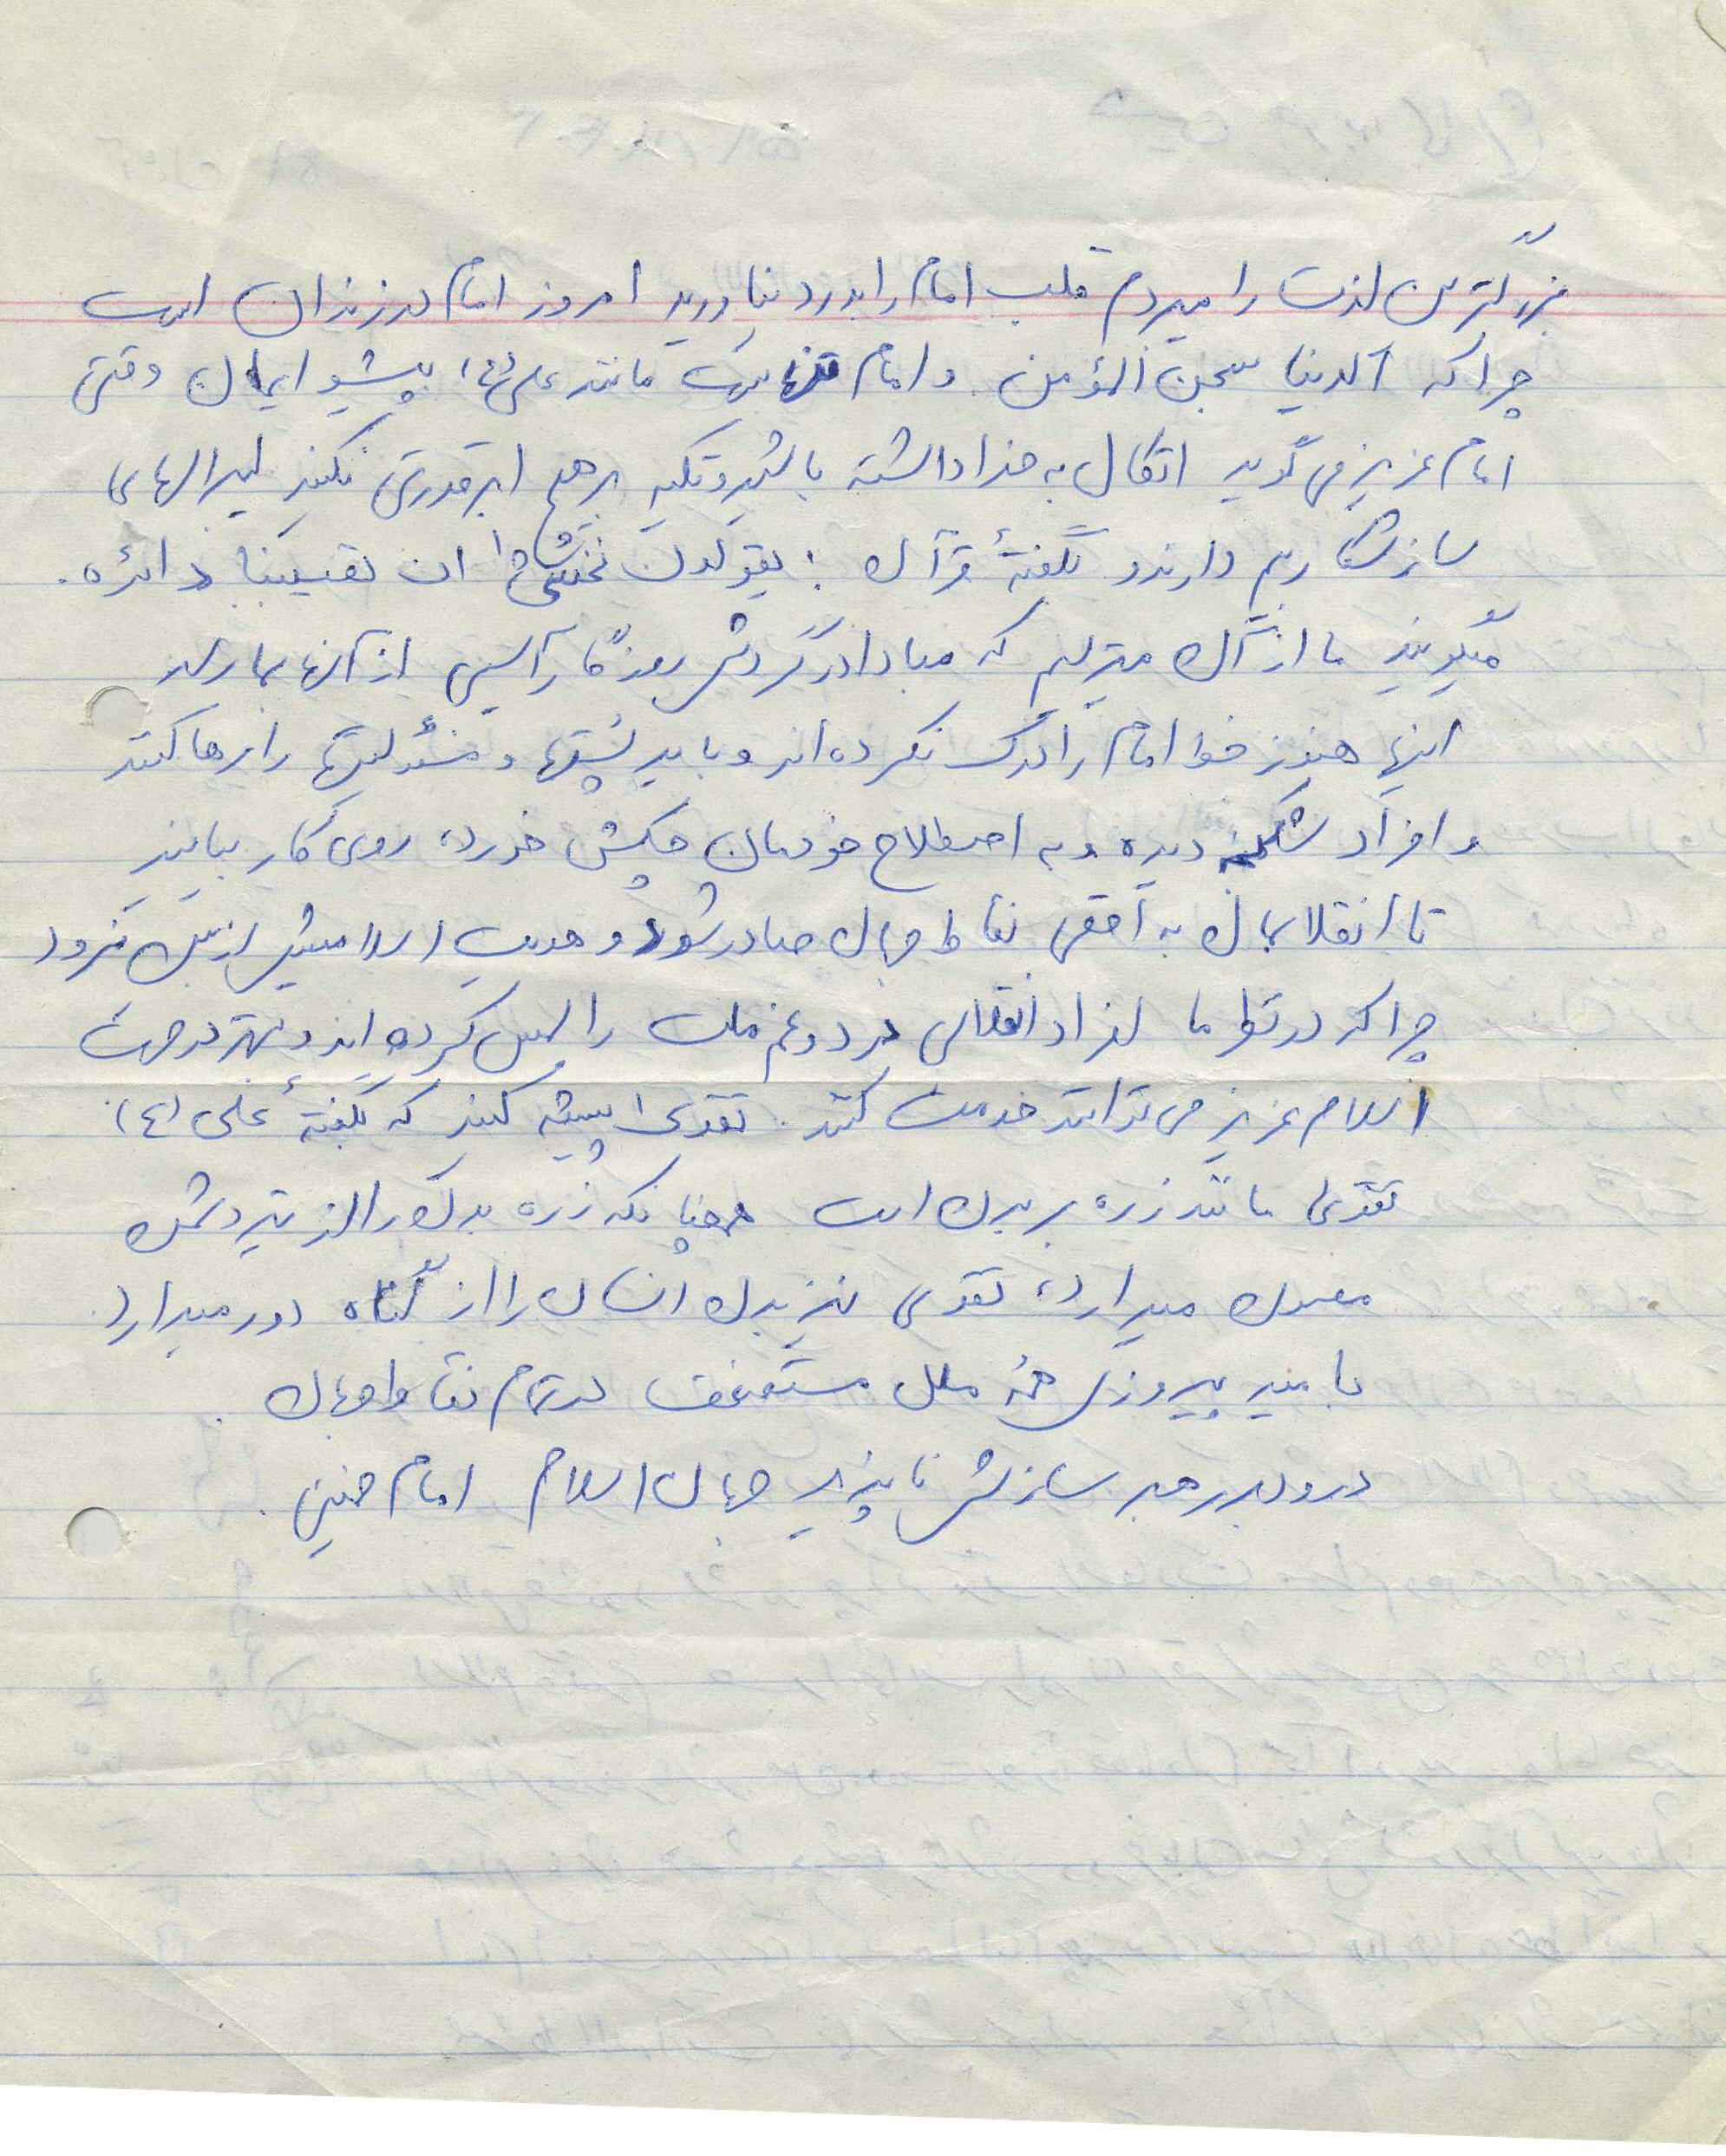 بزرگترین لذت را میبردم قلب امام را بدرد نیاورید امروز امام در زندان است
چرا که الدنیا سجن المؤمن و امام تنهاست مانند علی (ع) پیشوا ایمان وقتی
امام عزیز می گوید اتکال به خدا داشته باشید و تکیه بر هیچ ابرقدرتی نکنید لیبرالهای
سازشکار بیم دارند و بگفتهٔ قرآن : یقولون نخشی ان تصیبنا دائره .
میگویند ما از آن میترسیم که مبادا در گردش روزگار آسیبی از آنها بما رسد
اینها هنوز خط امام را درک نکرده اند و باید پستها و مسئولیتها را رها کنند
و افراد شکنجه دیده و به اصطلاح خودمان چکش خورده روی کار بیایند
تا انقلابمان به اقصی نقاط جهان صادر شود و هویت اسلامیش از بین نرود
چرا که در نظر ما افراد انقلابی درد و غم ملت را لمس کرده اند و بهتر در جهت
اسلام عزیز می توانند خدمت کنند . تقوی پیشه کنید که بگفتهٔ علی (ع)
تقوی مانند زره بر بدن است همچنانکه زره بدن را از تیر دشمن
مصون میدارد ، تقوی نیز بدن انسان را از گناه دور میدارد .
بامید پیروزی همهٔ ملل مستضعف در تمام نقاط جهان .
درود بر رهبر سازش ناپذیر جهان اسلام امام خمینی .